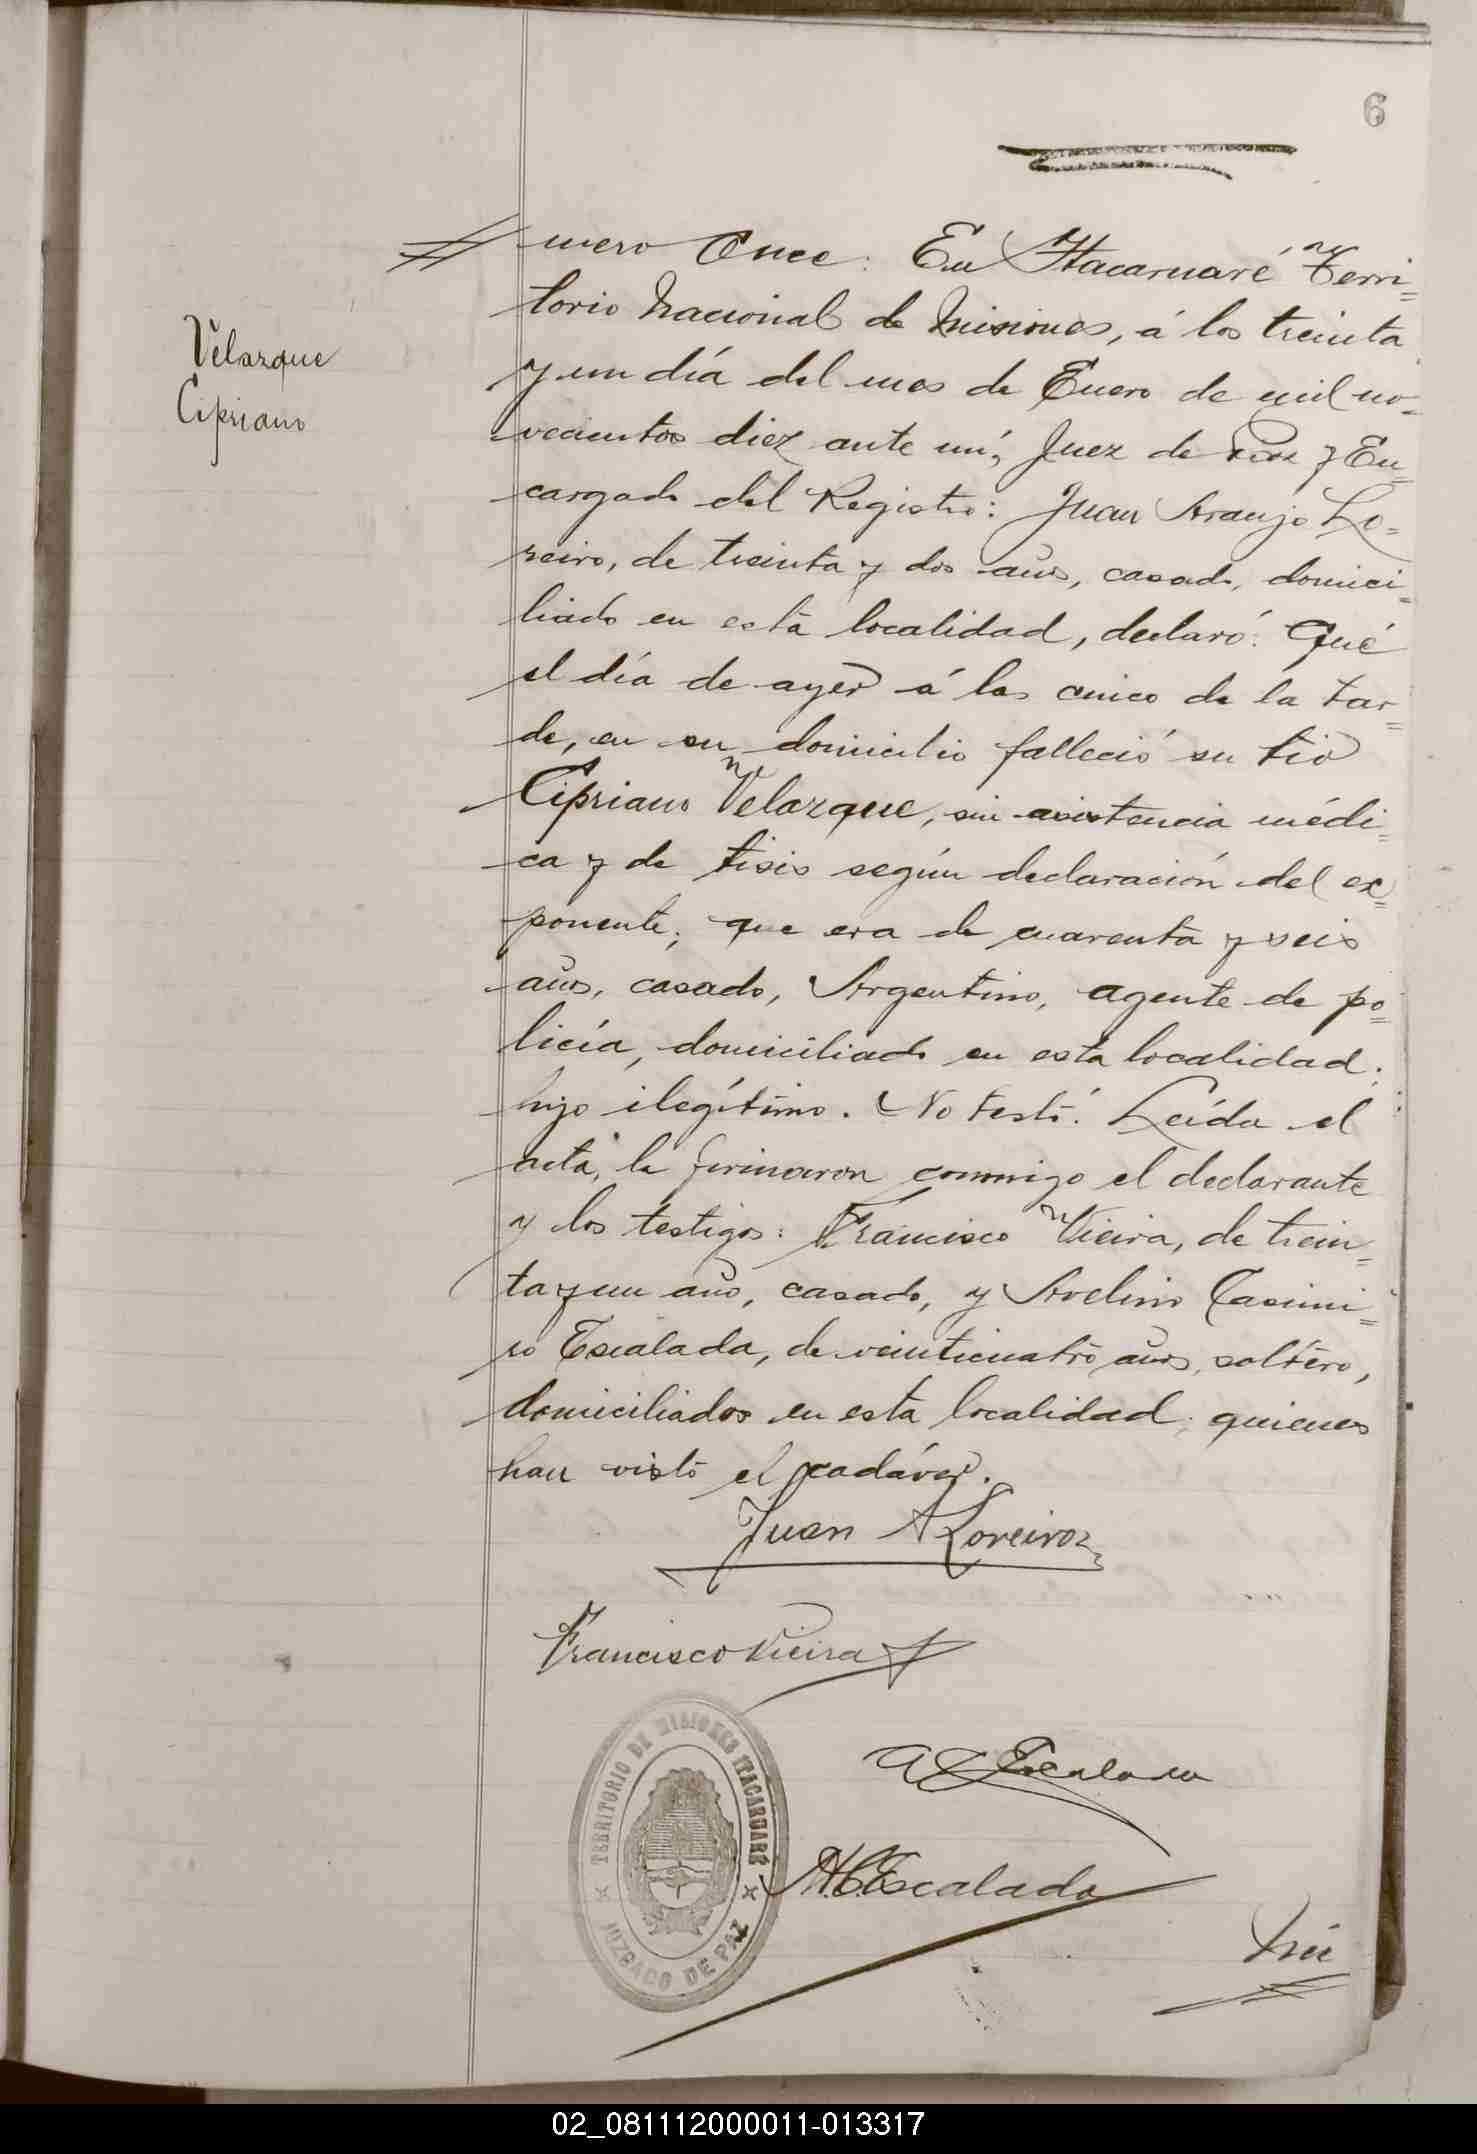 6
Velazque
Cipriano
mero Once: En Itacaruaré Terri=
torio Nacional de Misiones, á los treinta
y un día del mes de Enero de mil no=
vecientos diez ante mí, Juez de Paz y En=
cargado del Registro: Juan Araujo Lo=
reiro, de treinta y dos años, casado, domici=
liado en esta localidad, declaró: Qué
el día de ayer á las cinco de la tar=
de, en su domicilio falleció su tío
Cipriano Velazque, sin asistencia médi=
ca y de tisis según declaración del ex=
ponente; que era de cuarenta y seis
años, casado, Argentino, agente de po=
licía, domiciliado en esta localidad;
hijo ilegítimo. No testó. Leída el
acta, la firmaron conmigo el declarante
y los testigos: Francisco Vieira, de trein=
ta y un año, casado, y Avelino Casimi=
ro Escalada, de veinticuatro años, soltero,
domiciliados en esta localidad; quienes
han visto el cadáver.
Juan A Loreiro
Francisco Vieira
A C Escalada
TERRITORIO DE MISIONES ITACARUARÉ
JUZGADO DE PAZ
A.C. Escalada
02_081112000011-013317